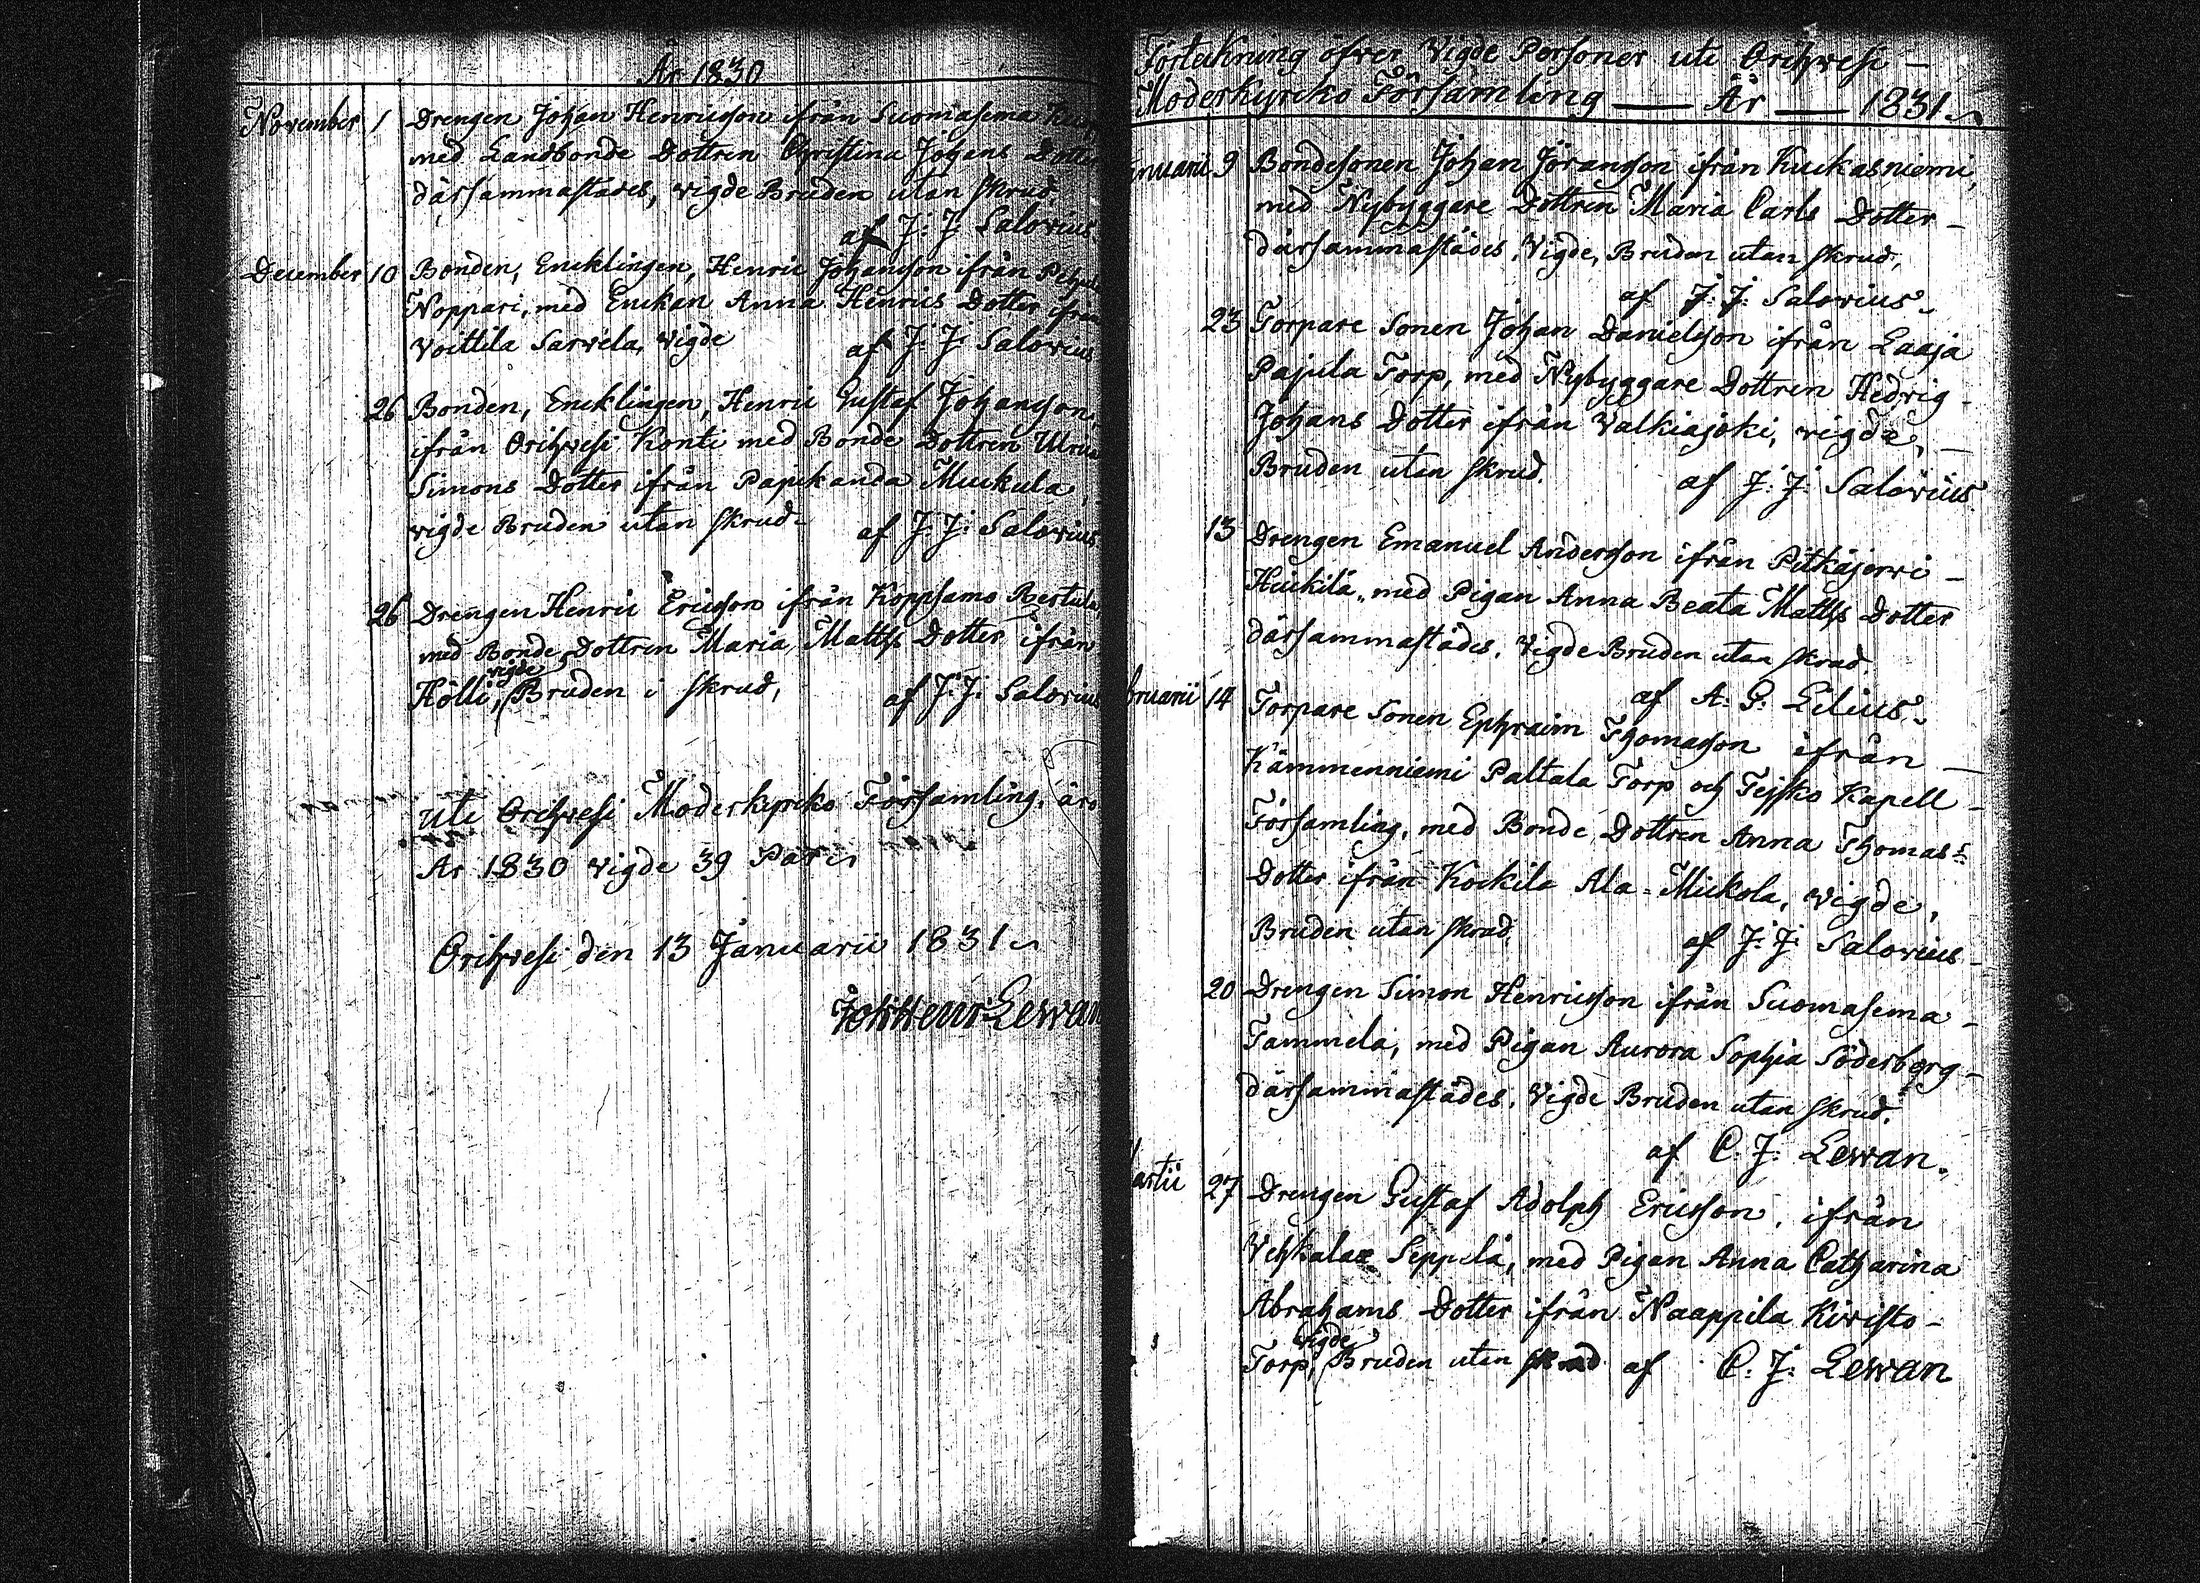 År 1830
November 1 Drengen Johan Henricsson ifrån Suomasema
med Landbonde Dottren Christina Johans Dotter
därsammastädes, vigde Bruden utan skrud,
af J: J: Salovius
December 10 Bonden, Encklingen, Henric Johansson ifrån
Noppari, med Enckan Anna Henrics Dotter ifrån
Voittila Sarvela, vigde af J: J: Salovius
26 Bonden, Encklingen, Henric Gustaf Johansson,
ifrån Orihvesi Konti med Bonde Dottren Ulrica
Simons Dotter ifrån Papinkanda Muckula,
vigde Bruden utan skrud af J: J: Salovius
26 Drengen Henric Ericsson ifrån Koppsamo Bertula
med Bonde Dottren Maria Matths Dotter ifrån
Hölli, vigde Bruden i skrud, af J: J: Salovius
Uti Orihvesi Moderkyrko Församling, äro
År 1830 vigde 39 Par
Orihvesi den 13 Januarii 1831
Joh: Henr: Lewan
Förtekning öfver Vigde Personer uti Orihvesi –
Moderkyrko Församling — År — 1831
nuarii 9 Bondesonen Johan Jöransson ifrån Kuckasniemi,
med Nybyggare Dottren Maria Carls Dotter –
därsammastädes, Vigde, Bruden utan skrud,
af J: J: Salovius
23 Torpare Sonen Johan Danielsson ifrån Laaja
Pajula Torp, med Nybyggare Dottren Hedvig –
Johans Dotter ifrån Valkiajoki, vigde, –
Bruden utan skrud. af J: J: Salovius
13 Drengen Emanuel Andersson ifrån Pitkäjervi –
Huckila, med Pigan Anna Beata Matths Dotter
därsammastädes. Vigde Bruden utan skrud
af A. G. Lilius
bruarii 14 Torpare Sonen Ephraim Thomasson ifrån –
Kämmenniemi Paltala Torp och Tejsko Kapell –
Församling, med Bonde Dottren Anna Thomas
Dotter ifrån Kockila Ala-Mickola, vigde,
Bruden utan skrud, af J: J: Salovius –
20 Drengen Simon Henricsson ifrån Suomasema –
Tammela, med Pigan Aurora Sophia Söderberg –
därsammastädes. Vigde Bruden utan skrud.
af C. J: Lewan.
artii 27 Drengen Gustaf Adolph Ericsson, ifrån
Vehkala Seppälä, med Pigan Anna Catharina
Abrahams Dotter ifrån Naappila Kivisto –
Torp, vigde Bruden utan skrud af C. J: Lewan